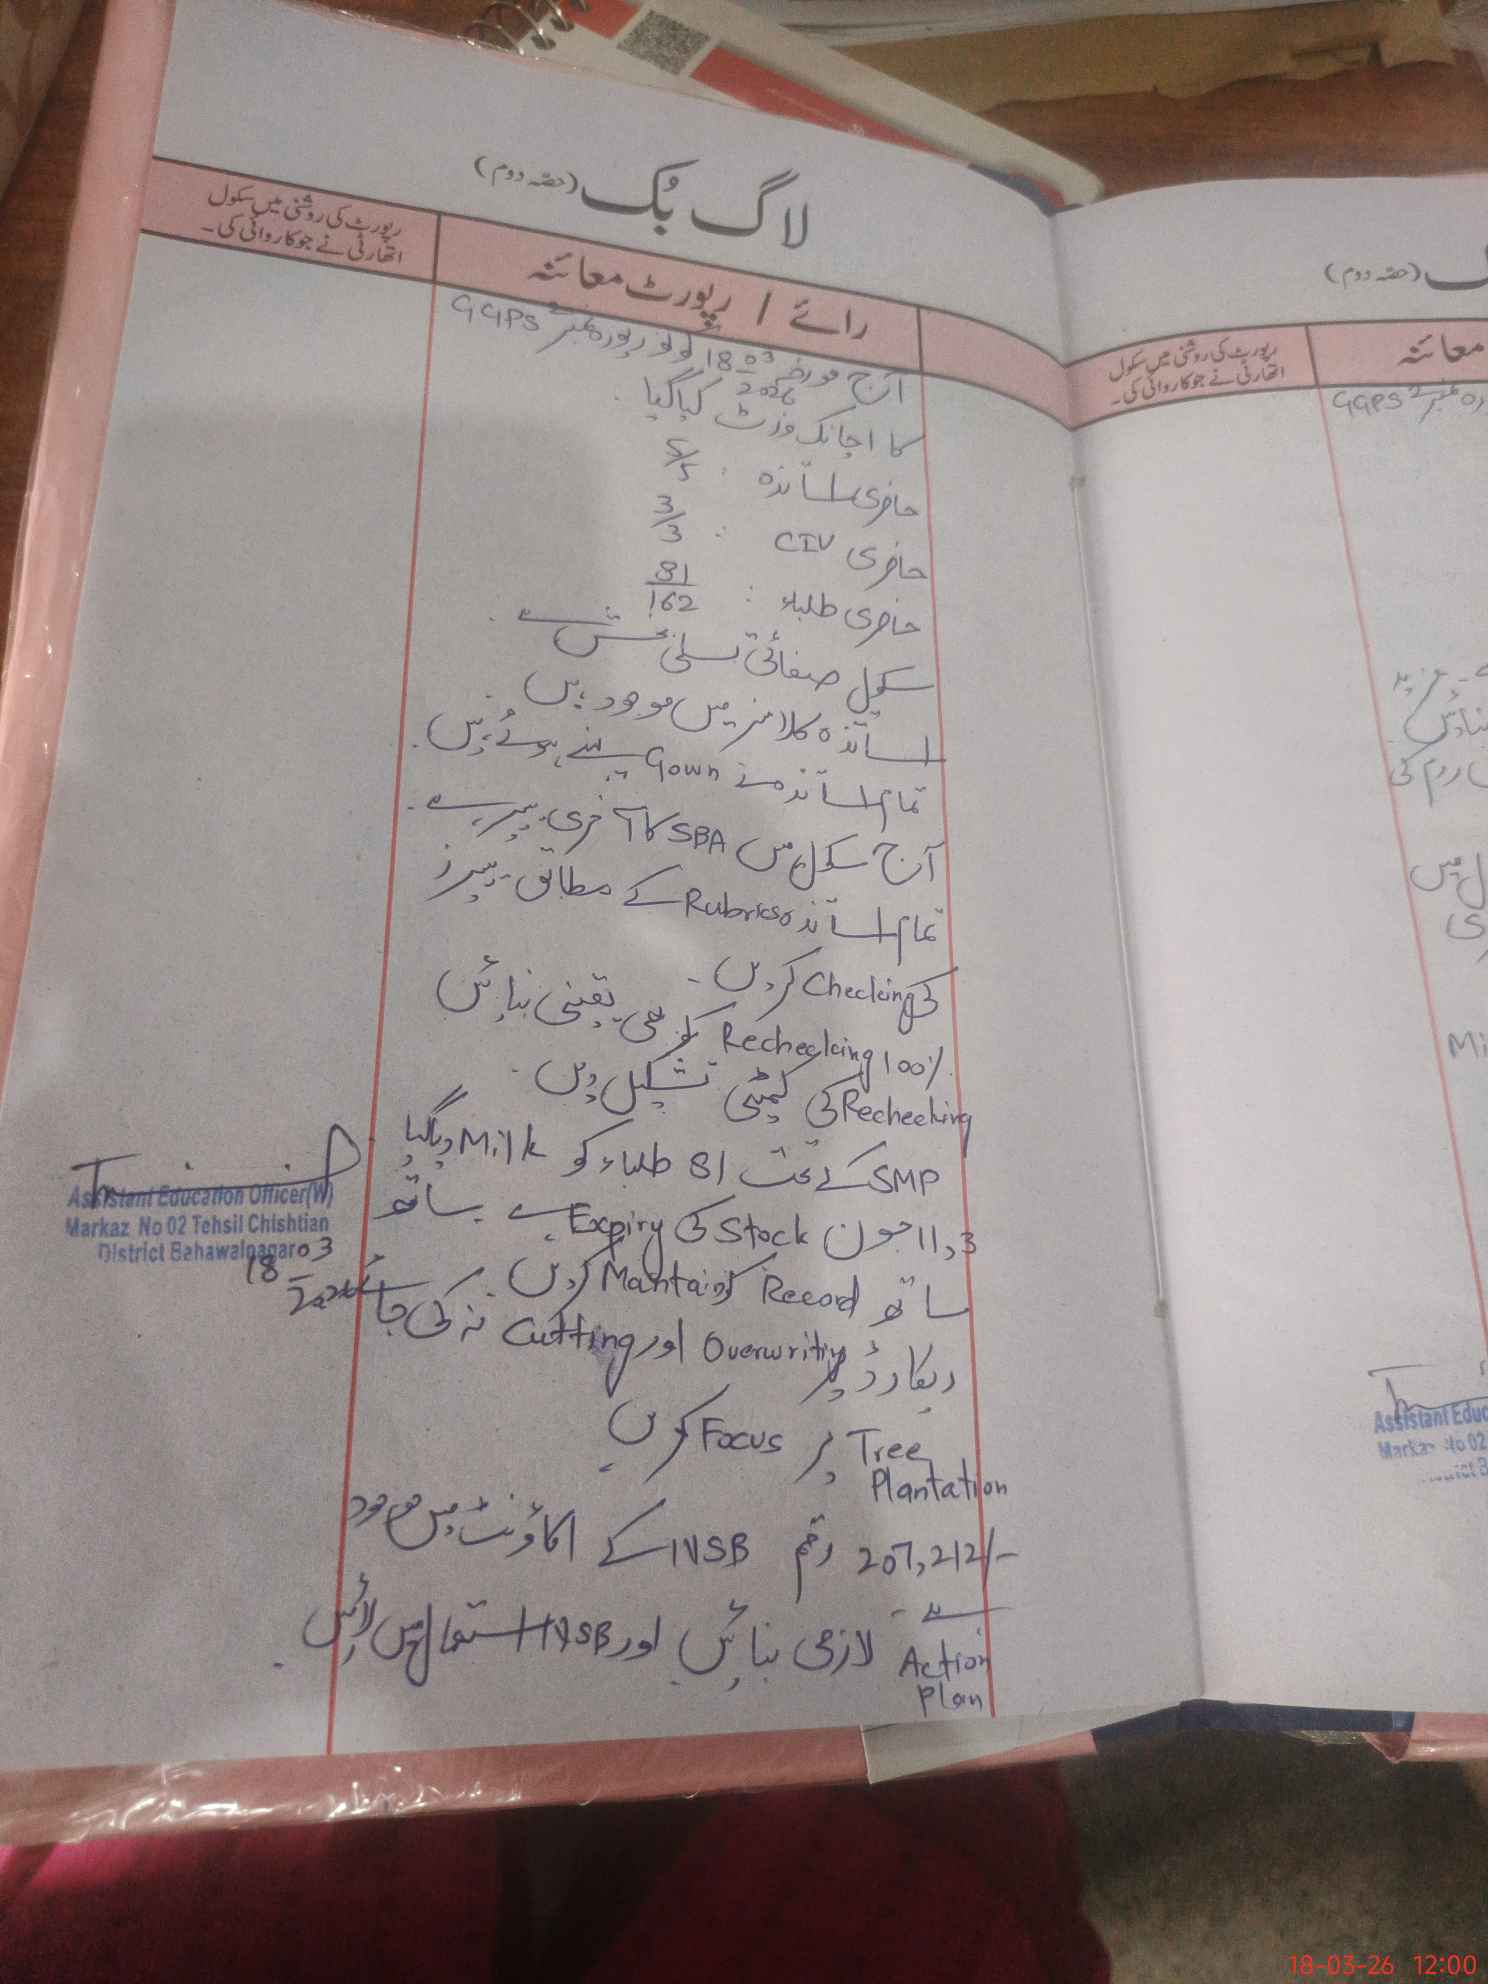 لاگ بُک (حصّہ دوم)
رائے / رپورٹ معائنہ
رپورٹ کی روشنی میں سکول
اتھارٹی نے جو کاروائی کی۔
آج مورخہ 18 03 2026 کو نور پورہ نمبر 2 GGPS
کا اچانک وزٹ کیا گیا۔
حاضری اساتذہ : 5/5
حاضری CIV : 3/3
حاضری طلباء : 81/162
سکول صفائی تسلی بخش ہے۔
اساتذہ کلاسز میں موجود ہیں۔
تمام اساتذہ نے Gown پہنے ہوئے ہیں۔
آج سکول میں SBA کا آخری پیپر ہے۔
تمام اساتذہ Rubrics کے مطابق پیپرز
کی Checking کریں۔
100% Rechecking کو بھی یقینی بنائیں
Rechecking کی کمیٹی تشکیل دیں۔
SMP کے تحت 81 طلباء کو Milk دیا گیا
3, 11 جون Stock کی Expiry ہے۔ ساتھ
ساتھ Record کو Maintain کریں۔
ریکارڈ پر Overwriting اور Cutting نہ کی جائے
Tree Plantation پر Focus کریں
207,212/- رقم NSB کے اکاؤنٹ میں موجود
ہے۔
Action Plan لازمی بنائیں اور NSB استعمال میں لائیں۔
Assistant Education Officer(W)
Markaz No 02 Tehsil Chishtian
District Bahawalnagar
18 03 2026
ک (حصّہ دوم)
معائنہ
رپورٹ کی روشنی میں سکول
اتھارٹی نے جو کاروائی کی۔
رہ نمبر 2 GGPS
ے۔ مزید
بنائیں۔
روم کی
ل میں
ری
Mi
Assistant Educ
Markaz No 02
18-03-26 12:00